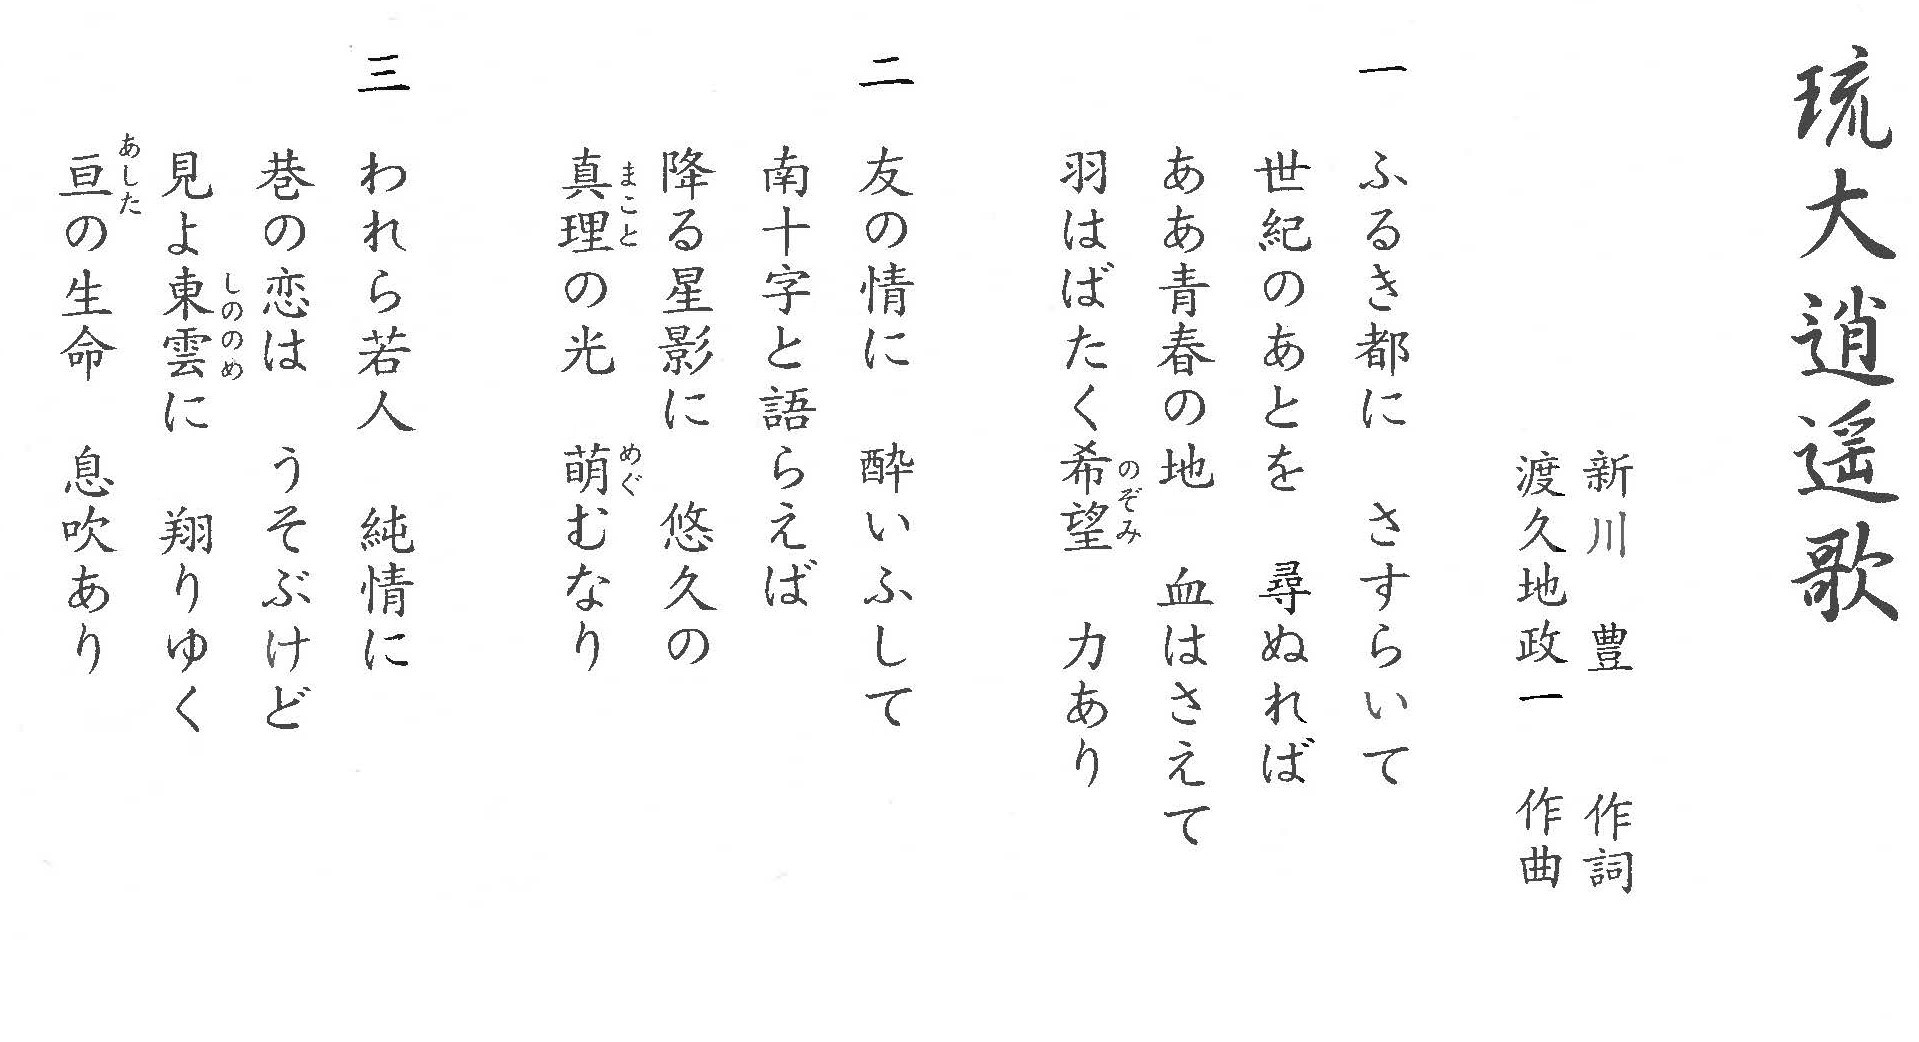 琉大逍遥歌
新川　豊　作詞
渡久地政一　作曲
一　ふるき都に　さすらいて
世紀のあとを　尋ぬれば
ああ青春の地　血はさえて
羽はばたく希望　力あり
のぞみ
二　友の情に　酔いふして
南十字と語らえば
降る星影に　悠久の
真理の光　萌むなり
まこと　めぐ
三　われら若人　純情に
巷の恋は　うそぶけど
見よ東雲に　翔りゆく
しののめ
亘の生命　息吹あり
あした